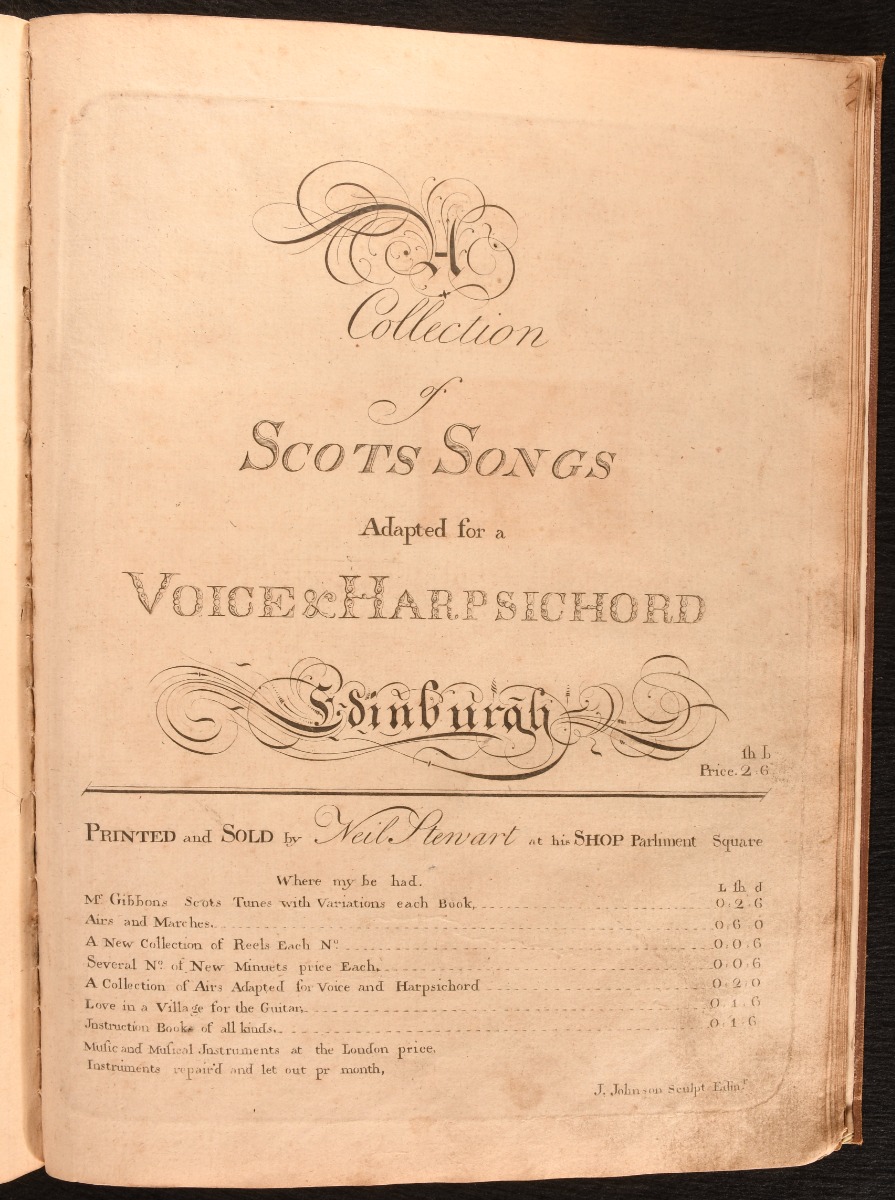 A
Collection
of
SCOTS SONGS
Adapted for a
VOICE & HARPSICHORD
Edinburgh
Price. 2 . 6
PRINTED and SOLD by Neil Stewart at his SHOP Parliment Square
Where my be had.
L ſh d
Mr Gibbons Scots Tunes with Variations each Book, 0 . 2 . 6
Airs and Marches. 0 . 6 . 0
A New Collection of Reels Each No. 0 . 0 . 6
Several No. of New Minuets price Each, 0 . 0 . 6
A Collection of Airs Adapted for Voice and Harpsichord 0 . 2 . 0
Love in a Village for the Guitar 0 . 1 . 6
Instruction Books of all kinds. 0 . 1 . 6
Muſic and Muſical Instruments at the London price,
Instruments repair'd and let out pr month,
J. Johnson Sculpt Edinr.